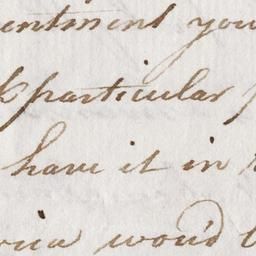 entiment you
particular
have it in
wou'd